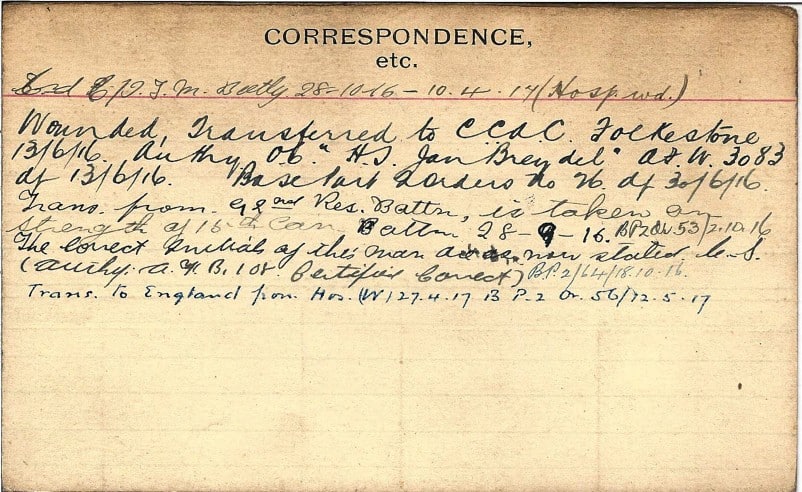 CORRESPONDENCE,
etc.
T.M. Batty. 28-10-16 - 10.4.17 (Hosp. wd.)
Wounded, Transferred to C.C.A.C. Folkestone
13/6/16. Authy Ob. "H.S. Jan Breydel" A.F.W. 3083
df 13/6/16. Base Part 2 orders No 26. df 30/6/16.
Trans. from Res. Battn, is taken on
strength of 16th Can. Battn. 28-9-16. B.P.2.Or.53/2.10.16
The Correct Initials of this man are as now stated.
(Authy. A.F.B. 108 Certified Correct) B.P.2/64/18.10.16.
Trans. to England from Hos. (W) 27.4.17 B P.2 Or. 56/12.5.17